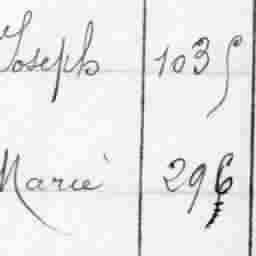 Joseph 103
Marie 296